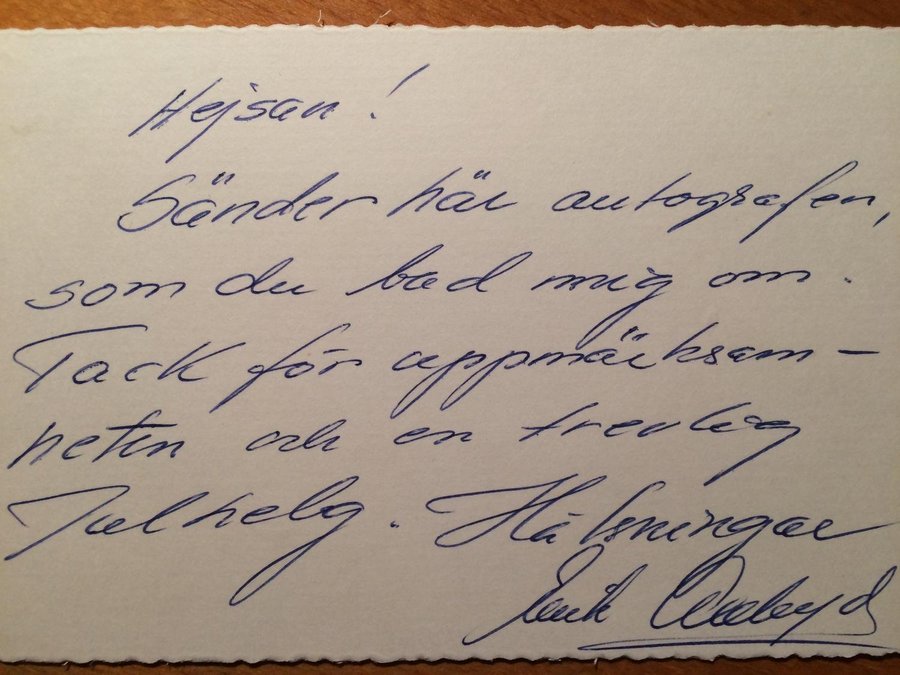 Hejsan!
Sänder här autografen,
som du bad mig om.
Tack för uppmärksam-
heten och en trevlig
Julhelg. Hälsningar